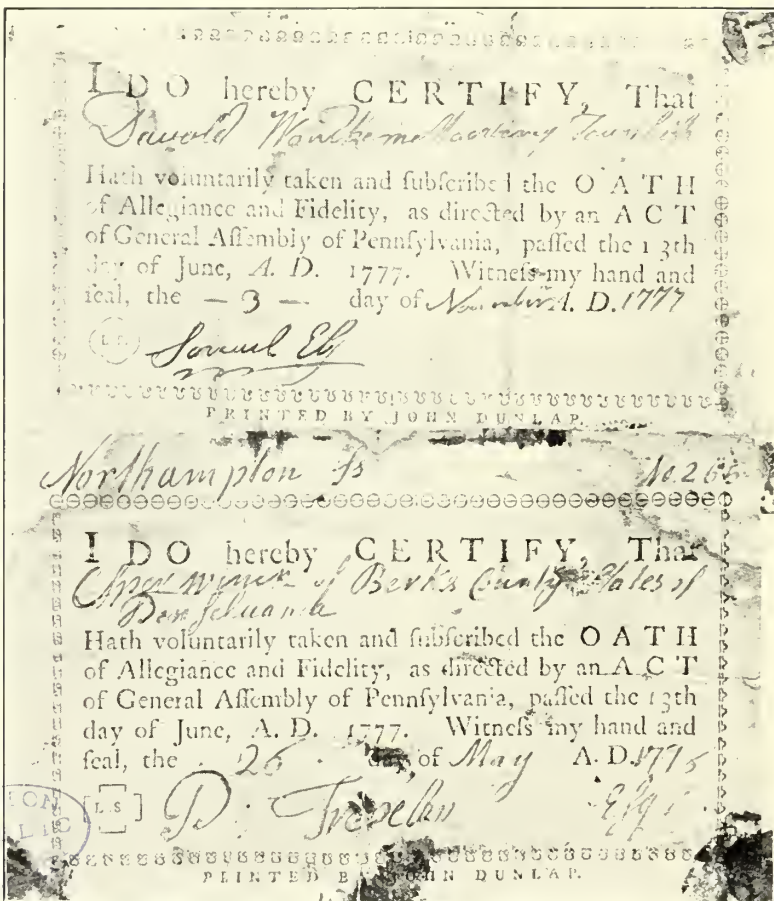 I DO hereby CERTIFY, That
Hath voluntarily taken and ſubſcribed the OATH
of Allegiance and Fidelity, as directed by an ACT
of General Aſſembly of Pennſylvania, paſſed the 13th
day of June, A. D. 1777. Witneſs my hand and
ſeal, the — 3 — day of A. D. 1777
L. S. Samuel
PRINTED BY JOHN DUNLAP.
Northampton ſs No. 265
I DO hereby CERTIFY, That
of Berks County States of
Hath voluntarily taken and ſubſcribed the OATH
of Allegiance and Fidelity, as directed by an ACT
of General Aſſembly of Pennſylvania, paſſed the 13th
day of June, A. D. 1777. Witneſs my hand and
ſeal, the 26 day of May A. D. 177
[L.S]
PRINTED BY JOHN DUNLAP.